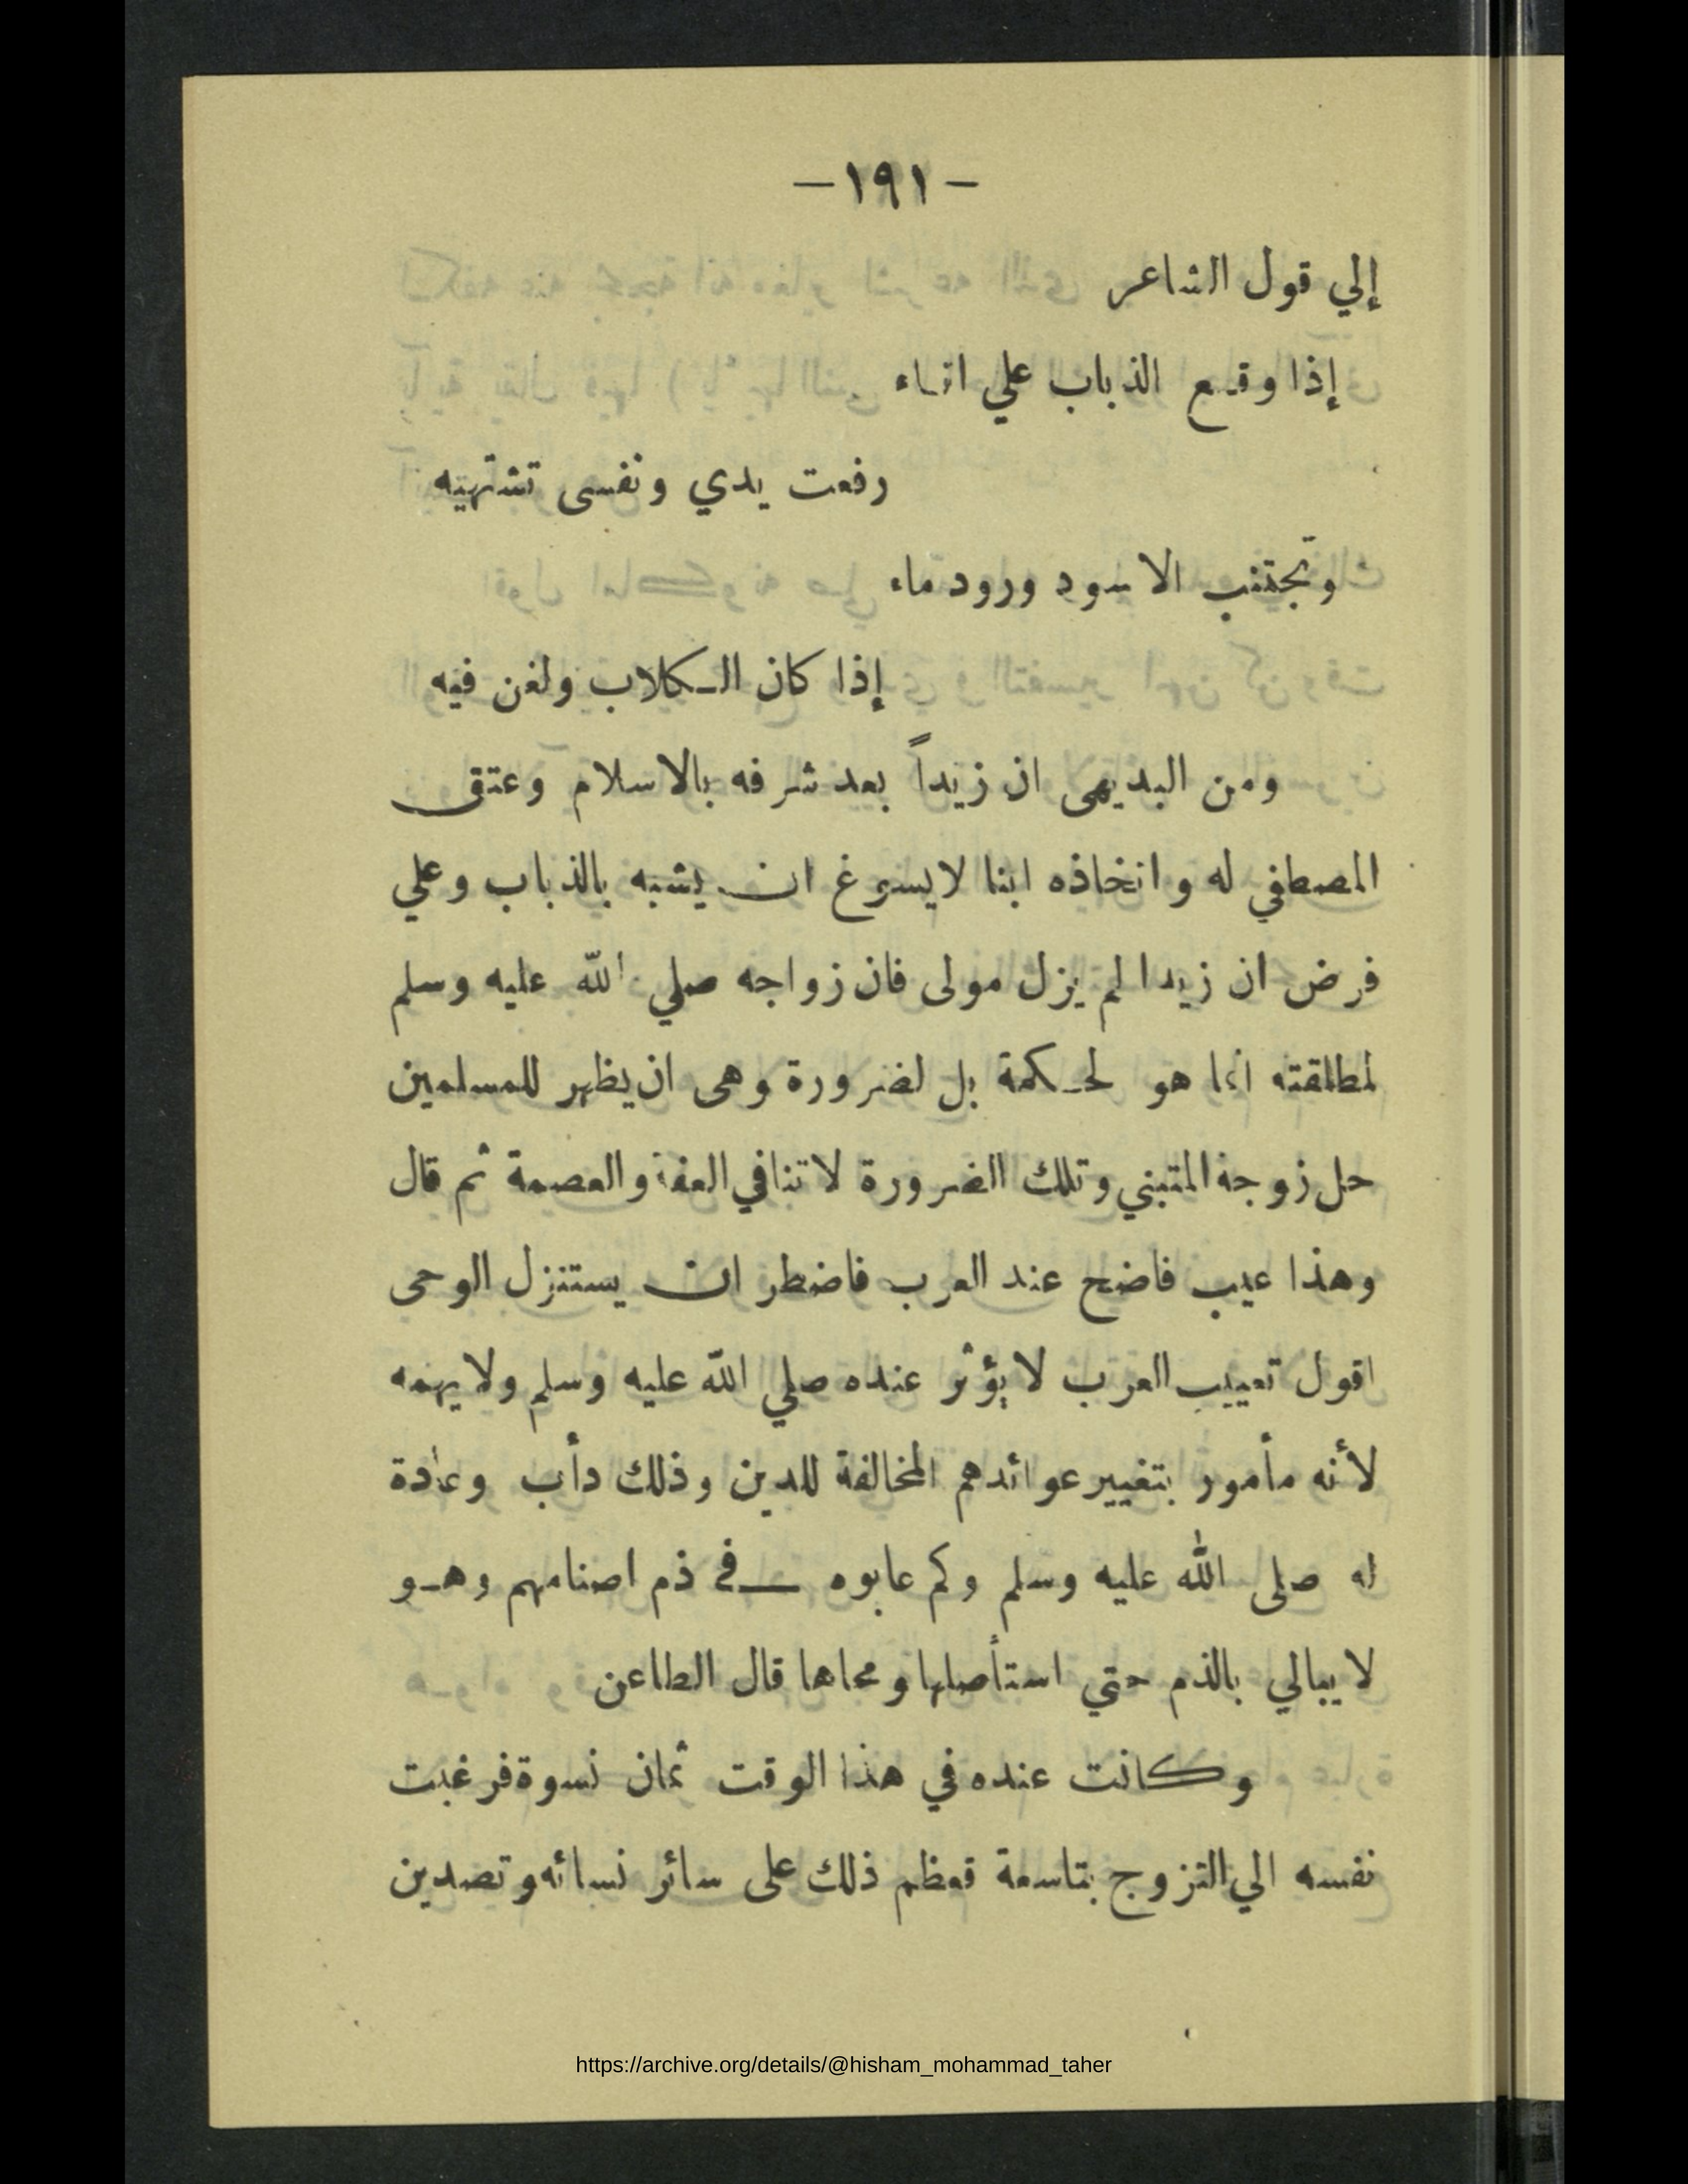 —١٩١—
إلي قول الشاعر
إذا وقع الذباب علي اناء
رفعت يدي ونفسى تشتهيه
وتجتنب الاسود ورود ماء
إذا كان الكلاب ولغن فيه
ومن البديهى ان زيداً بعد شرفه بالاسلام وعتق
المصطفي له واتخاذه ابنا لايسوغ ان يشبه بالذباب وعلي
فرض ان زيدا لم يزل مولى فان زواجه صلي الله عليه وسلم
لمطلقته انما هو لحكمة بل لضرورة وهى ان يظهر للمسلمين
حل زوجة المتبني وتلك الضرورة لا تنافي العفة والعصمة ثم قال
وهذا عيب فاضح عند العرب فاضطر ان يستنزل الوحى
اقول تعييب العرب لا يؤثر عنده صلي الله عليه وسلم ولا يهمه
لأنه مأمور بتغيير عوائدهم المخالفة للدين وذلك دأب وعادة
له صلى الله عليه وسلم وكم عابوه في ذم اصنامهم وهو
لا يبالي بالذم حتي استأصلها ومحاها قال الطاعن
وكانت عنده في هذا الوقت ثمان نسوة فرغبت
نفسه الي التزوج بتاسعة فعظم ذلك على سائر نسائه وتصدين
https://archive.org/details/@hisham_mohammad_taher